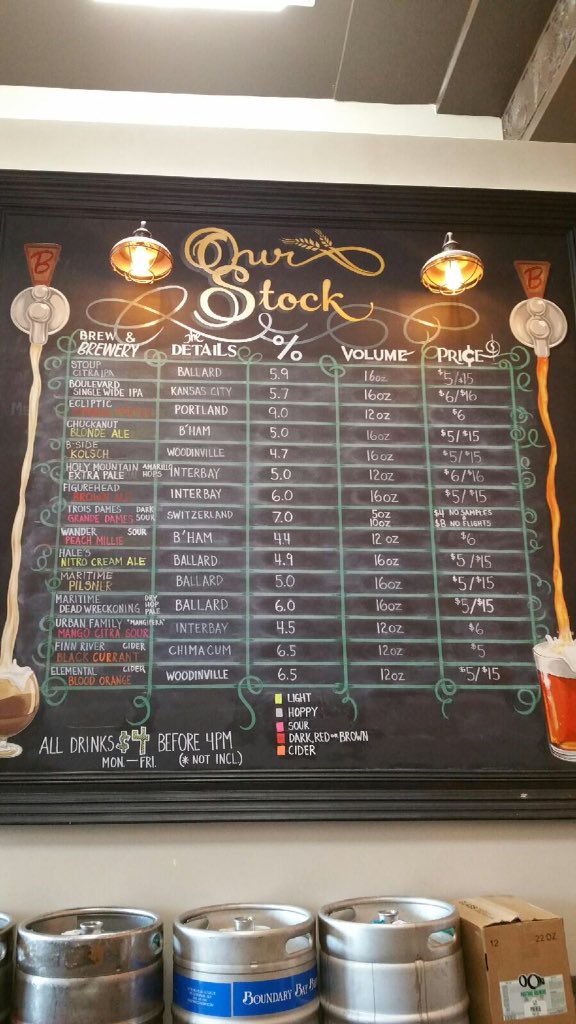 B
B
Our
Stock
BREW & BREWERY THE DETAILS % VOLUME PRICE
STOUP
CITRA IPA BALLARD 5.9 16oz $5/$15
BOULEVARD
SINGLE WIDE IPA KANSAS CITY 5.7 16oz $6/$16
ECLIPTIC
PORTLAND 9.0 12oz $6
CHUCKANUT
BLONDE ALE B'HAM 5.0 16oz $5/$15
B-SIDE
KOLSCH WOODINVILLE 4.7 16oz $5/$15
HOLY MOUNTAIN AMARILLO
EXTRA PALE HOPS INTERBAY 5.0 12oz $6/$16
FIGUREHEAD
BROWN ALE INTERBAY 6.0 16oz $5/$15
TROIS DAMES DARK
GRANDE DAMES SOUR SWITZERLAND 7.0 5oz $4 NO SAMPLES
10oz $8 NO FLIGHTS
WANDER SOUR
PEACH MILLIE B'HAM 4.4 12oz $6
HALE'S
NITRO CREAM ALE BALLARD 4.9 16oz $5/$15
MARITIME
PILSNER BALLARD 5.0 16oz $5/$15
MARITIME DRY HOP PALE
DEAD WRECKONING BALLARD 6.0 16oz $5/$15
URBAN FAMILY "MANGIFERA"
MANGO CITRA SOUR INTERBAY 4.5 12oz $6
FINN RIVER CIDER
BLACK CURRANT CHIMACUM 6.5 12oz $5
ELEMENTAL CIDER
BLOOD ORANGE WOODINVILLE 6.5 12oz $5/$15
LIGHT
HOPPY
SOUR
DARK, RED OR BROWN
CIDER
ALL DRINKS $4 BEFORE 4PM
MON.—FRI. (* NOT INCL.)
BOUNDARY BAY
12 22 OZ